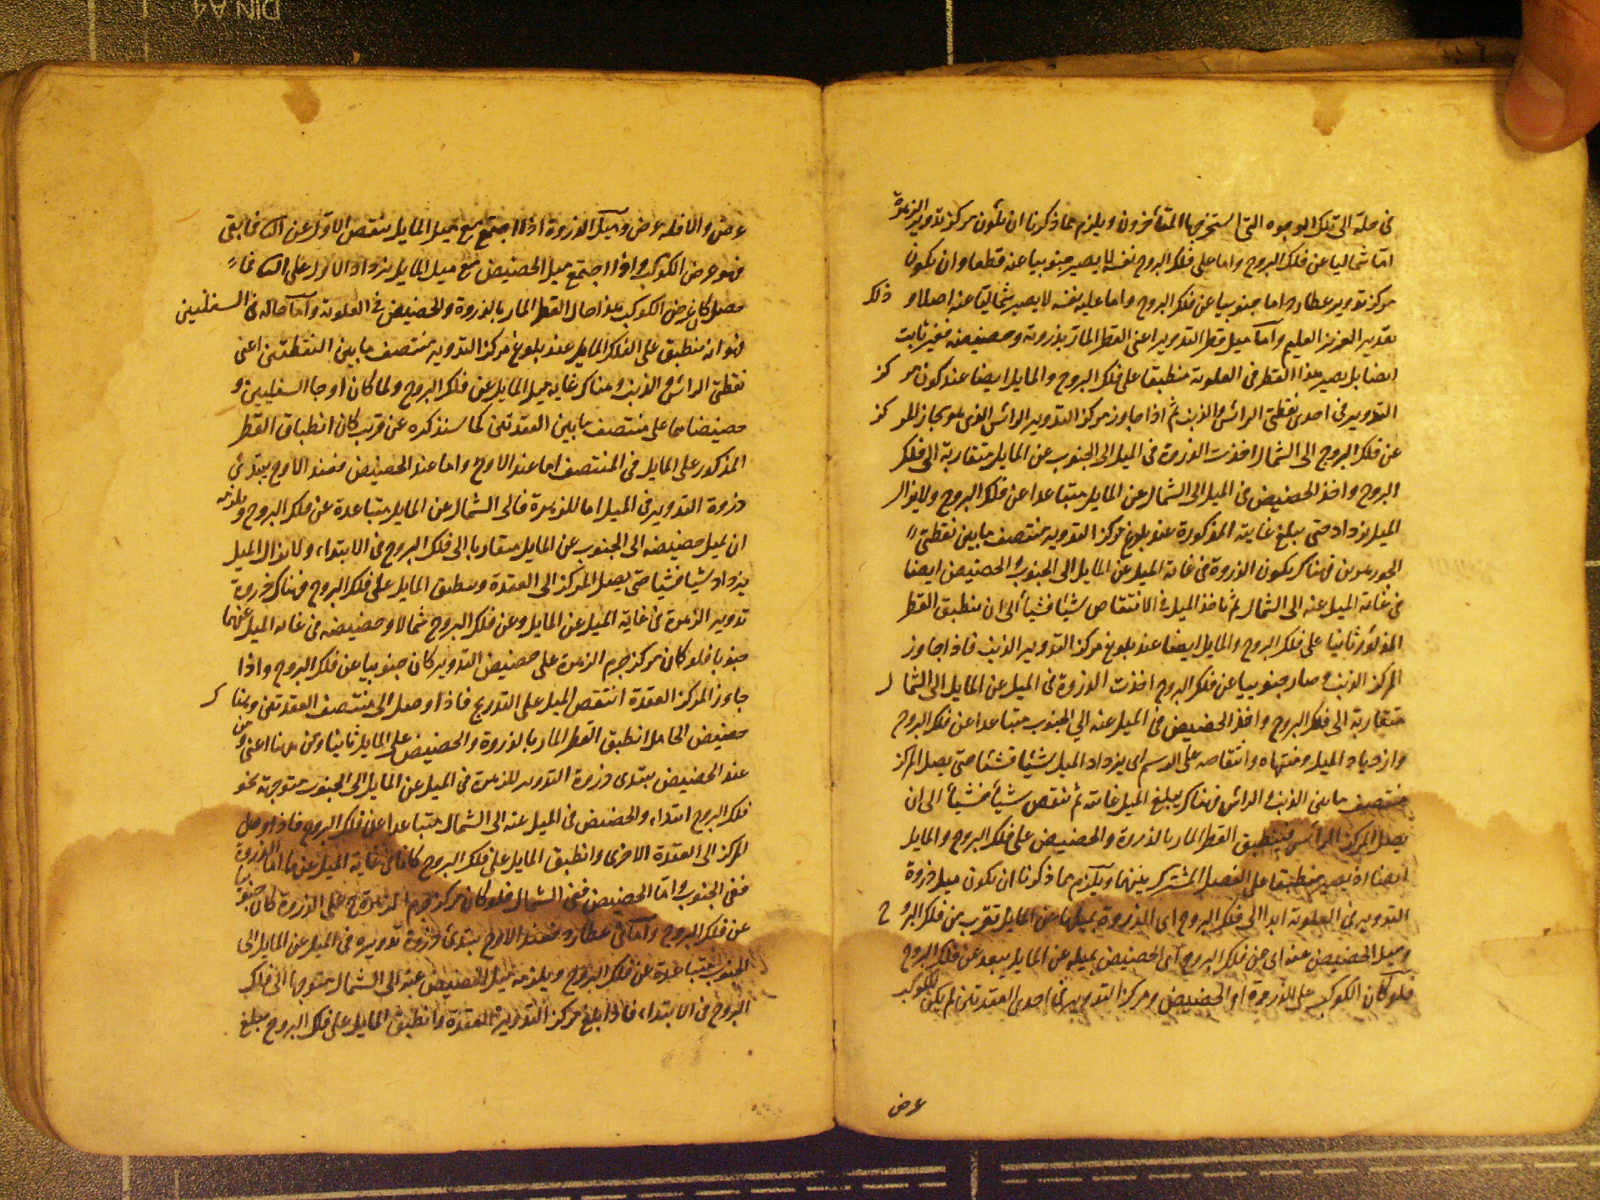 في حله الى تلك الوجوه التي استخرجها المتأخرون ويلزم مما ذكرنا ان يكون مركز تدوير الزهرة
اما شماليا عن فلك البروج واما على فلك البروج نفسه لا يصير جنوبيا عنه قطعا وان يكون
مركز تدوير عطارد اما جنوبيا عن فلك البروج واما عليه نفسه لا يصير شماليا عنه اصلا و ذلك
تقدير العزيز العليم واما ميل قطر التدوير اعني القطر المار بذروته وحضيضه فغير ثابت
ايضا بل يصير هذا القطر في العلوية منطبقا على فلك البروج والمايل ايضا عند كون مركز
التدوير في احدى نقطتي الراس والذنب ثم اذا جاوز مركز التدوير الراس الذي هو مجاز المركز
عن فلك البروج الى الشمال اخذت الذروة في الميل الى الجنوب عن المايل متقاربة الى فلك
البروج واخذ الحضيض في الميل الى الشمال عن المايل متباعدا عن فلك البروج ولا يزال
الميل يزداد حتى يبلغ غايته المذكورة عند بلوغ مركز التدوير منتصف ما بين نقطتي
الجوزهرين فهناك يكون الذروة في غاية الميل عن المايل الى الجنوب والحضيض ايضا
في غاية الميل عنه الى الشمال ثم ياخذ الميل في الانتقاص شيئا فشيئا الى ان ينطبق القطر
المذكور ثانيا على فلك البروج والمايل ايضا عند بلوغ مركز التدوير الذنب فاذا جاوز
المركز الذنب وصار جنوبيا عن فلك البروج اخذت الذروة في الميل عن المايل الى الشمال
متقاربة الى فلك البروج واخذ الحضيض في الميل عنه الى الجنوب متباعدا عن فلك البروج
وازدياد الميل ومنتهاه وانتقاصه على الرسم اي يزداد الميل شيئا فشيئا حتى يصل المركز
منتصف ما بين الذنب والراس فهناك يبلغ الميل غايته ثم ينقص شيئا فشيئا الى ان
يصل المركز الراس فينطبق القطر المار بالذروة والحضيض على فلك البروج والمايل
ايضا اذ يصير منطبقا على الفصل المشترك بينهما ويلزم مما ذكرنا ان يكون ميل ذروة
التدوير في العلوية ابدا الى فلك البروج اي الذروة بميلها عن المايل تقرب من فلك البروج
وميل الحضيض عنه اي عن فلك البروج اي الحضيض بميله عن المايل يبعد عن فلك البروج
فلو كان الكوكب على الذروة او الحضيض ومركز التدوير في احدى العقدتين لم يكن للكوكب
عرض
عرض والا فله عرض وميل الذروة اذا اجتمع مع ميل المايل ينقص الاول عن الثاني فما بقي
فهو عرض الكوكب واذا اجتمع ميل الحضيض مع ميل المايل يزداد الاول على الثاني فما
حصل كان عرض الكوكب هذا حال القطر المار بالذروة والحضيض في العلوية واما حاله في السفليين
فهو انه ينطبق على الفلك المايل عند بلوغ مركز التدوير منتصف ما بين النقطتين اعني
نقطتي الراس والذنب وهناك غاية ميل المايل عن فلك البروج ولما كان اوجا السفليين و
حضيضاهما على منتصف ما بين العقدتين كما سنذكره عن قريب كان انطباق القطر
المذكور على المايل في المنتصف اما عند الاوج واما عند الحضيض فعند الاوج يبتدئ
ذروة التدوير في الميل اما للزهرة فالى الشمال عن المايل متباعدة عن فلك البروج ويلزمه
ان يميل حضيضه الى الجنوب عن المايل متقاربا الى فلك البروج في الابتداء ولا يزال الميل
يزداد شيئا فشيئا حتى يصل المركز الى العقدة وينطبق المايل على فلك البروج فهناك ذروة
تدوير الزهرة في غاية الميل عن المايل وعن فلك البروج شمالا وحضيضه في غاية الميل عنهما
جنوبا فلو كان مركز جرم الزهرة على حضيض التدوير كان جنوبيا عن فلك البروج واذا
جاوز المركز العقدة انتقص الميل على التدريج فاذا وصل الى منتصف العقدتين وهناك
حضيض الحامل انطبق القطر المار بالذروة والحضيض على المايل ثانيا ومن هناا اعني من
عند الحضيض يبتدئ ذروة التدوير للزهرة في الميل عن المايل الى الجنوب متوجهة نحو
فلك البروج ابتداء والحضيض في الميل عنه الى الشمال متباعدا عن فلك البروج فاذا وصل
المركز الى العقدة الاخرى وانطبق المايل على فلك البروج كانا في غاية الميل عنهما اما الذروة
ففي الجنوب واما الحضيض ففي الشمال فلو كان مركز جرم الزهرة ح على الذروة كان جنوبيا
عن فلك البروج واما في عطارد فعند الاوج يبتدئ ذروة تدويره في الميل عن المايل الى
الجنوب متباعدة عن فلك البروج ويلزمه ميل الحضيض عنه الى الشمال متوجها الى فلك
البروج في الابتداء فاذا بلغ مركز التدوير العقدة وانطبق المايل على فلك البروج بلغ